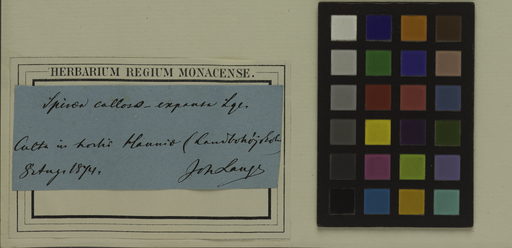 HERBARIUM REGIUM MONACENSE.
Spiræa callosa-expansa Lge.
Culta in horto Haunio (Landbohøjskol
8 Aug. 1874. Joh Lange